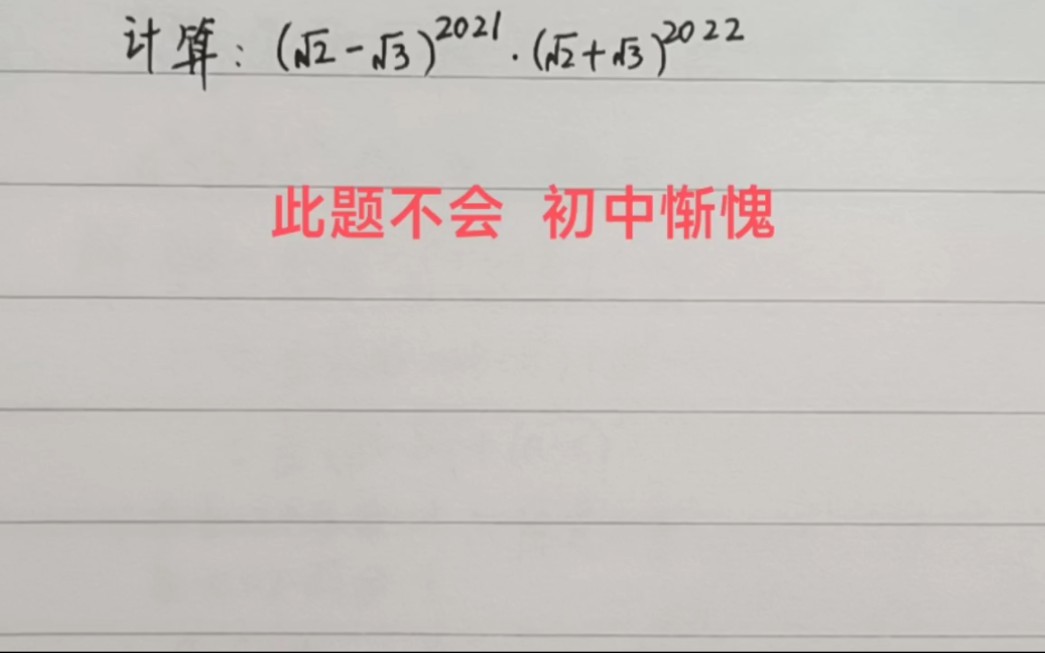 计算：(√2-√3)^2021·(√2+√3)^2022
此题不会 初中惭愧